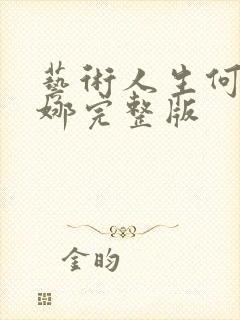 藝術人生何
娜完整版
金昀